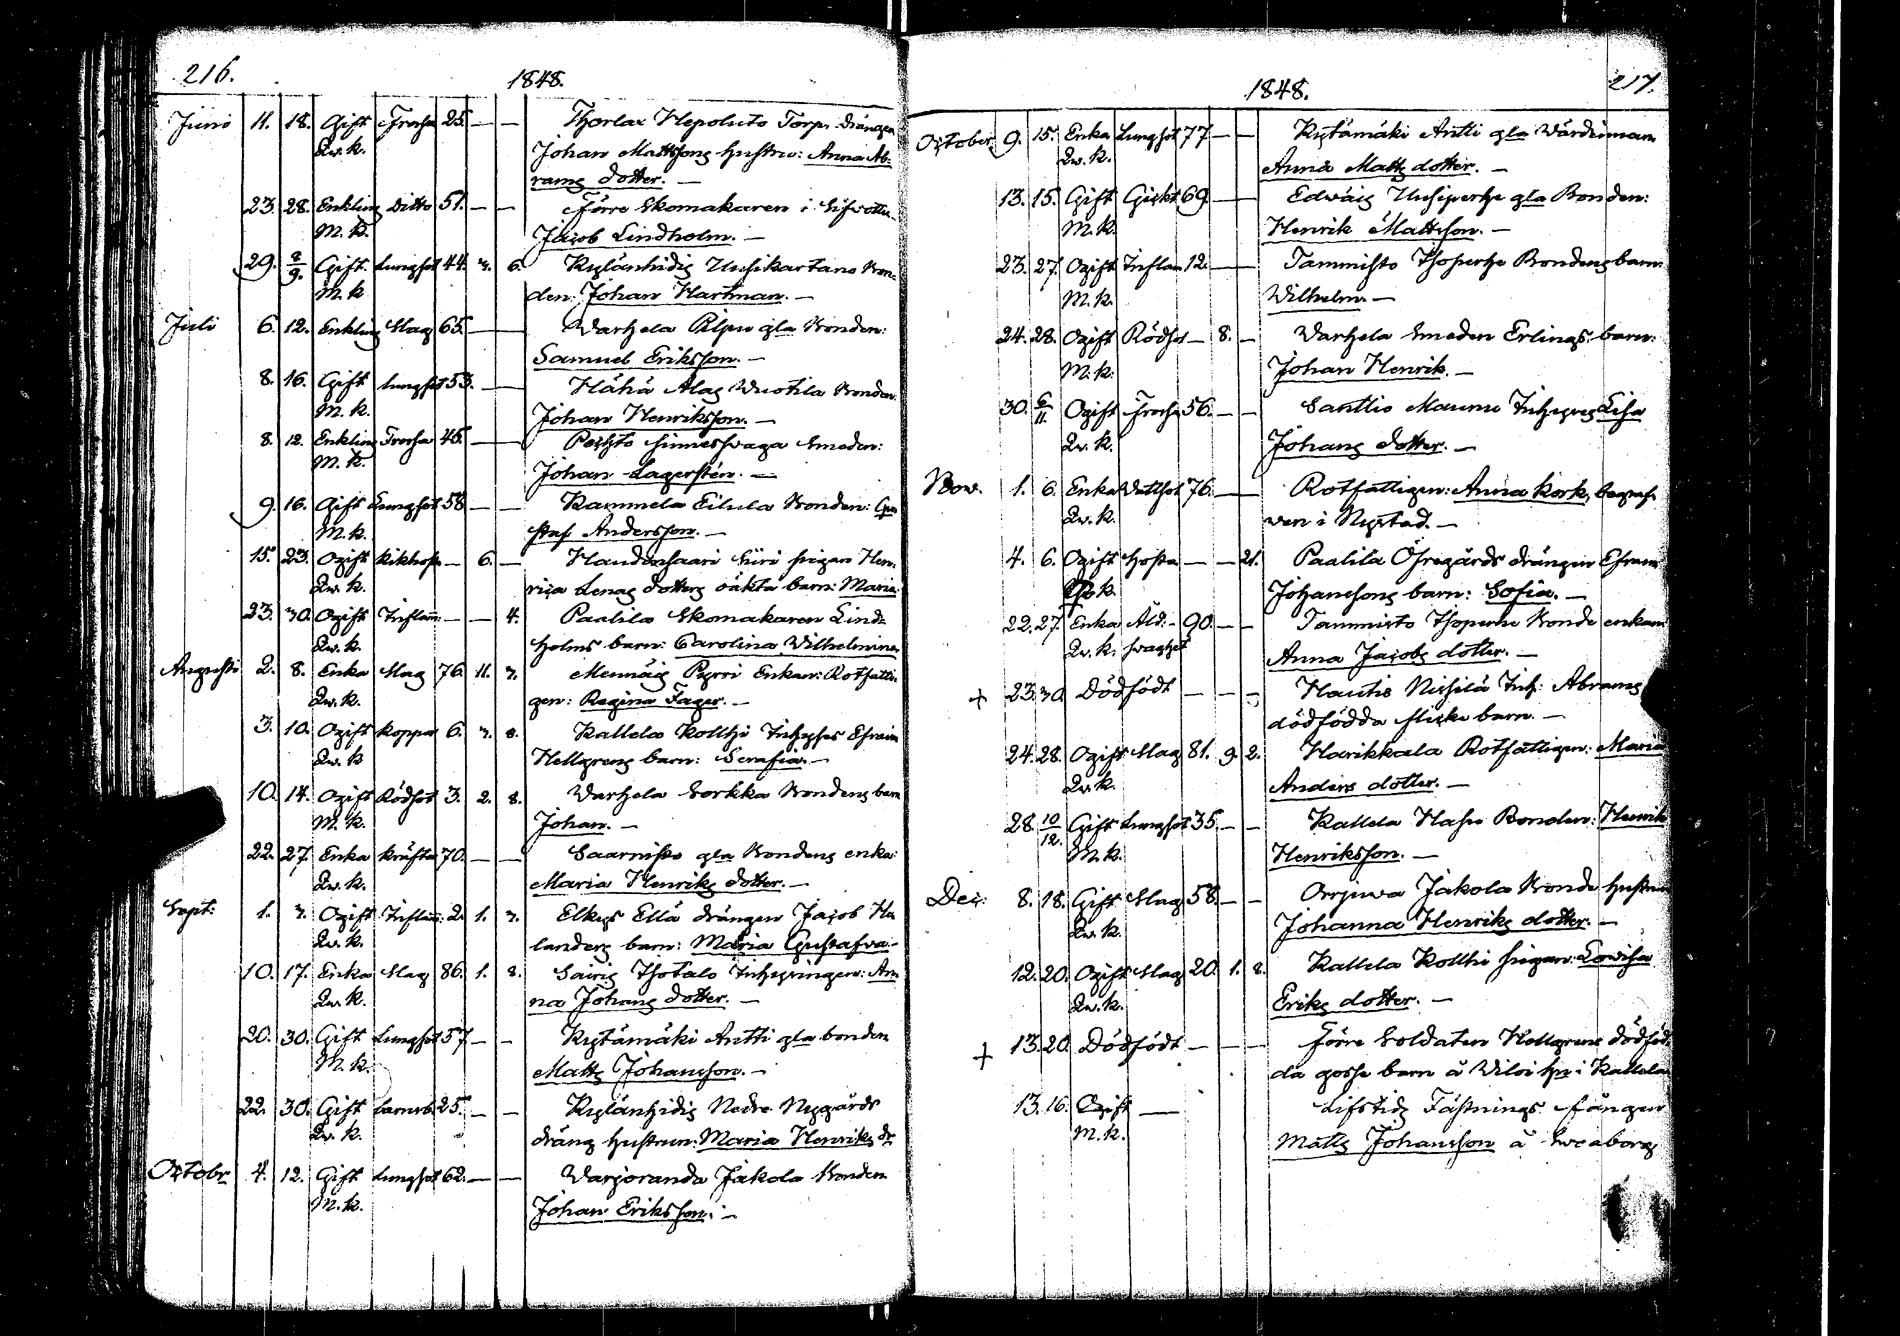 216.
1848.
Junii 11. 18. Gift Frossa 25. — — Thorlax Hepoluto Torp. drängen
Qw.k. Johan Mattssons hustru: Anna Ab-
rams dotter. —
23. 28. Enkling Ditto 51. — — Förre Skomakaren i
M.k. Jacob Lindholm. —
29. 2/9. Gift Lungsot 44. 3. 6. Kylänhidis Uusikartano Bon-
M.k den: Johan Hartman. —
Juli 6. 12. Enkling Slag 65. — Warhela Pilpu gla Bonden:
Samuel Eriksson. —
8. 16. Gift lungsot 53. — Hähä Alas Wuotila Bonden
M.k. Johan Henriksson. —
8. 12. Enkling Frossa 45. — Smeden:
M.k. Johan Lagerstén. —
9. 16. Gift Lungsot 58 — — Kammela Eilula Bonden: Gu-
M.k. staf Andersson. —
15. 23. Ogift Kikhost — 6. — Siiri pigan Hen-
Qw.k. rica Lenas dotters oäkta barn: Maria.
23. 30. Ogift Inflam: — — 4. Paalila Skomakaren Lind-
Qw.k. holms barn: Carolina Wilhelmina
Augusti 2. 8. Enka Slag 76. 11. 3. Mennäis Pyrri Enkan: Rotfatti-
Qw.k. gen: Regina Fager. —
3. 10. Ogift koppor 6. 3. 8. Kallela Kollhi Inhyses Efraim
Qw.k Hellgrens barn: Serafia. —
10. 14. Ogift Rödsot 3. 2. 8. Warhela Sorkka Bondens barn
M.k. Johan. —
22. 27. Enka kräfta 70. — — Saarnisto gla Bondens enka:
Qw.k. Maria Henriks dotter. —
Sept: 1. 3. Ogift Inflam: 2. 1. 3. Elkys Ellä drängen Jacob He-
Qw.k. landers barn: Maria Gustafva —
10. 17. Enka Slag 86. 1. 8. Sairis Isotalo Inhysingen: An-
Qw.k. na Johans dotter. —
20. 30. Gift Lungsot 57 — — Kytämäki Antti gla bonden
M.k. Matts Johansson. —
22. 30. Gift barnsb 25. — — Kylänhidis Nedre Nygårds
Qw.k. dräng hustrun: Maria Henriks dr
Octobr 4. 12. Gift Lungsot 62. — — Warjoranda Jakola Bonden
M.k. Johan Eriksson. —
1848.
217.
October 9. 15. Enka Lungsot 77 — — Kytämäki Antti gla Wärdinnan
Qw.k. Anna Matts dotter. —
13. 15. Gift Gickt 69. — Edwäis Uusiperhe gla Bonden:
M.k. Henrik Mattsson. —
23. 27. Ogift Inflam 12. — Tammisto Isoperhe Bondens barn:
M.k. Wilhelm. —
24. 28. Ogift Rödsot — 8. — Warhela Smeden Erlings barn:
M.k. Johan Henrik. —
30. 6/11. Ogift Frossa 56. — — Santtio Maunu Inhyses Lisa
Qw.k. Johans dotter. —
Nov. 1. 6. Enka Wattsot 76. — Rotfattigen: Anna Kork, begraf-
Qw.k. wen i Nystad. —
4. 6. Ogift Hosta — — 21. Paalila Öfregårds drängen Efraim
k. Johanssons barn: Sofia. —
22. 27. Enka Åld: 90. — — Tammisto Isoperhe Bonde enkan
Qw.k. swaghet Anna Jacobs dotter. —
+ 23. 30. Dödfödt — — — Hautis Nihilä Inh: Abrams
dödfödda flicke barn. —
24. 28. Ogift Slag 81. 9. 2. Harikkala Rotfattigen: Maria
Qw.k. Anders dotter. —
28. 10/12. Gift Lungsot 35. — — Kallela Hasu Bonden: Henrik
M.k. Henriksson. —
Dec: 8. 18. Gift Slag 58. — — Jakola Bonde hustrun
Qw.k. Johanna Henriks dotter. —
12. 20. Ogift Slag 20. 1. 8. Kallela Kollhi pigan: Lovisa
Qw.k. Eriks dotter. —
+ 13. 20. Dödfödt — — — Förre Soldaten Hellgrens dödföd-
da gosse barn å i Kallela
13. 16. Ogift — Lifstids Fästnings fången
M.k. Matts Johansson å Sweaborg